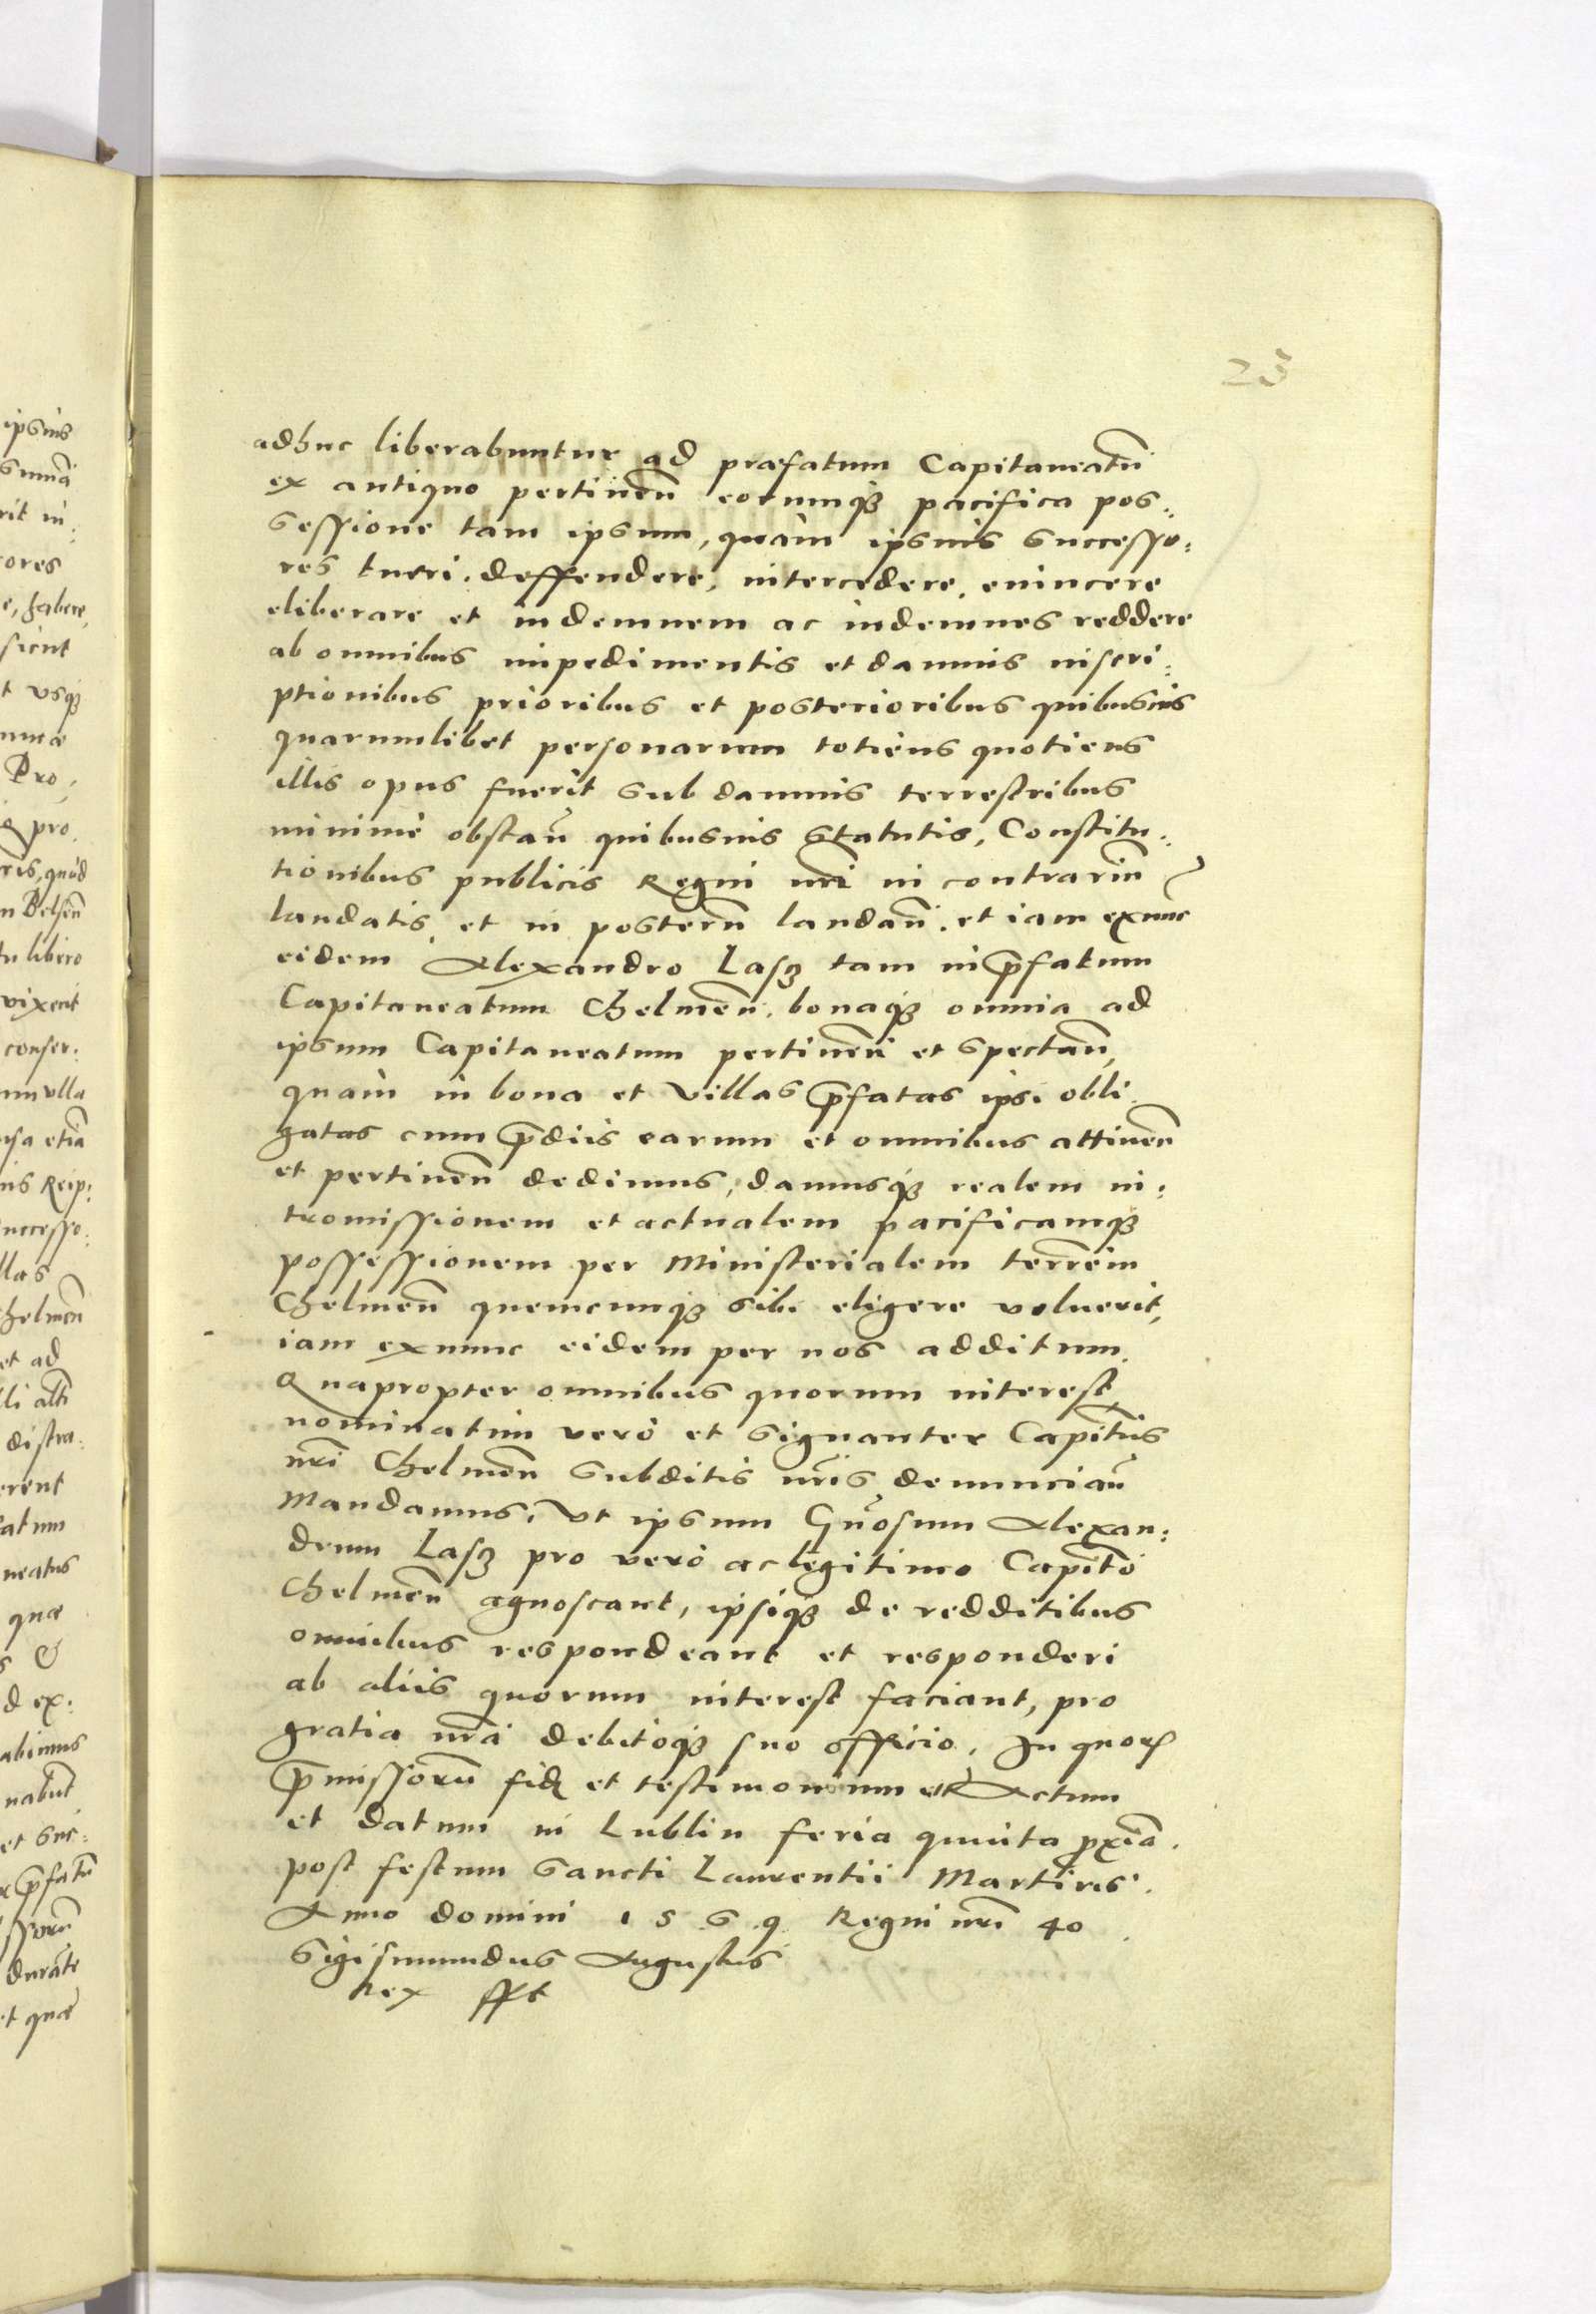 25
adhuc liberabuntur ad præfatum Capitaneatũ
ex antiquo pertineñ eorumq3 pacifica pos:
sessione tam ipsum, quàm ipsius successo:
res tueri, deffendere, intercedere, euincere
eliberare et indemnem ac indemnes reddere
ab omnibus impedimentis et damnis inscri:
ptionibus prioribus et posterioribus quibusuis
quarumlibet personarum totiens quotiens
illis opus fuerit sub damnis terrestribus
minimè obstañ quibusuis statutis, Constitu:
tionibus publicis Regni nr̃i in contrariũ
laudatis, et in posterũ laudañ. et iam exnunc
eidem Alexandro Lasc3 tam in p̃fatum
Capitaneatum Chelmeñ. bonaq3 omnia ad
ipsum Capitaneatum pertineñ et spectañ,
quàm in bona et villas p̃fatas ipsi obli
gatas cum p̃diis earum et omnibus attineñ
et pertineñ dedimus, damusq3 realem in:
tromissionem et actualem pacificamq3
possessionem per Ministerialem terrẽm
Chelmeñ quemcunq3 sibi eligere voluerit,
iam exnunc eidem per nos additum.
Quapropter omnibus quorum interest,
nominatim verò et signanter Capitũs
nr̃i Chelmeñ subditis nr̃is denunciañ
Mandamus, Vt ipsum Gñosum Alexan:
drum Lasc3 pro vero ac legitimo Capitõ
Chelmeñ agnoscant, ipsiq3 de redditibus
omnibus respondeant et responderi
ab aliis quorum interest faciant, pro
gratia nr̃a debitoq3 suo officio. In quorũ
p̃missorũ fidẽ et testimonium etc Actum
et datum in Lublin feria quinta px̃ia.
post festum Sancti Laurentii Martiris.
Anno domini 1569 Regni nr̃i 40.
Sigismundus Augustus
Rex sst